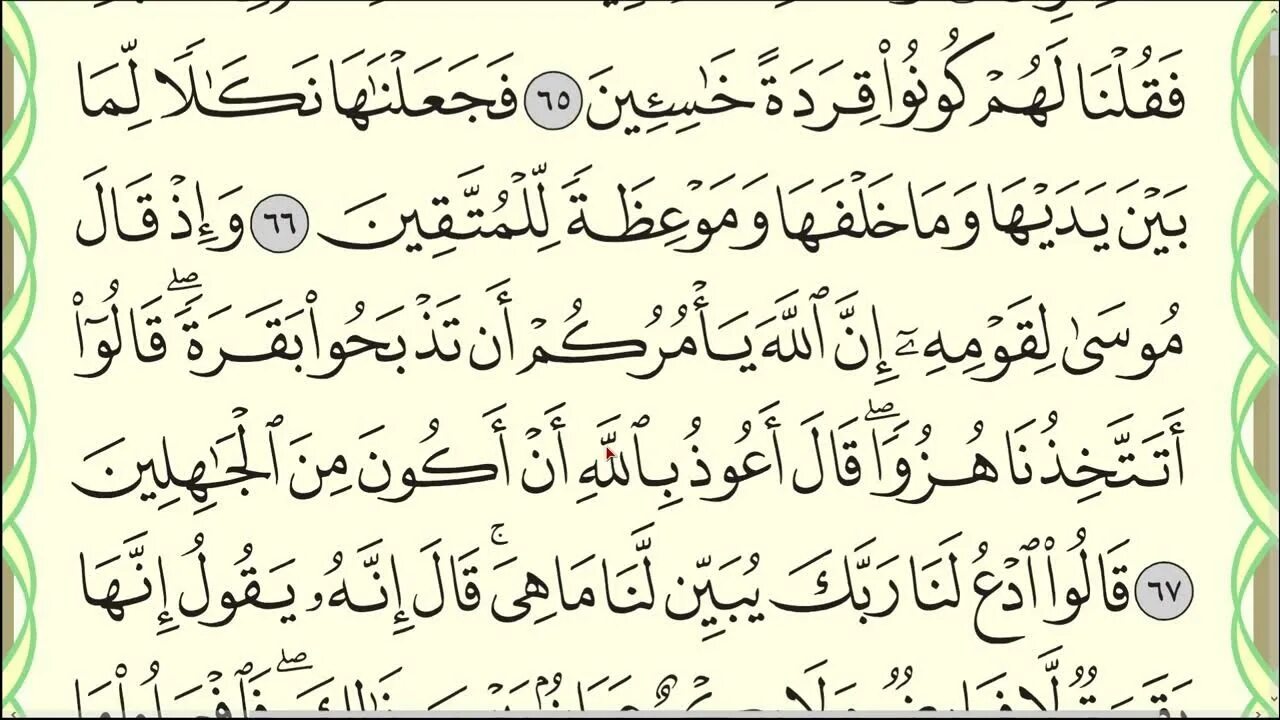 فَقُلْنَا لَهُمْ كُونُوا۟ قِرَدَةً خَـٰسِـِٔينَ ٦٥ فَجَعَلْنَـٰهَا نَكَـٰلًا لِّمَا
بَيْنَ يَدَيْهَا وَمَا خَلْفَهَا وَمَوْعِظَةً لِّلْمُتَّقِينَ ٦٦ وَإِذْ قَالَ
مُوسَىٰ لِقَوْمِهِۦٓ إِنَّ ٱللَّهَ يَأْمُرُكُمْ أَن تَذْبَحُوا۟ بَقَرَةً ۖ قَالُوٓا۟
أَتَتَّخِذُنَا هُزُوًا ۖ قَالَ أَعُوذُ بِٱللَّهِ أَنْ أَكُونَ مِنَ ٱلْجَـٰهِلِينَ
٦٧ قَالُوا۟ ٱدْعُ لَنَا رَبَّكَ يُبَيِّن لَّنَا مَا هِىَ ۚ قَالَ إِنَّهُۥ يَقُولُ إِنَّهَا